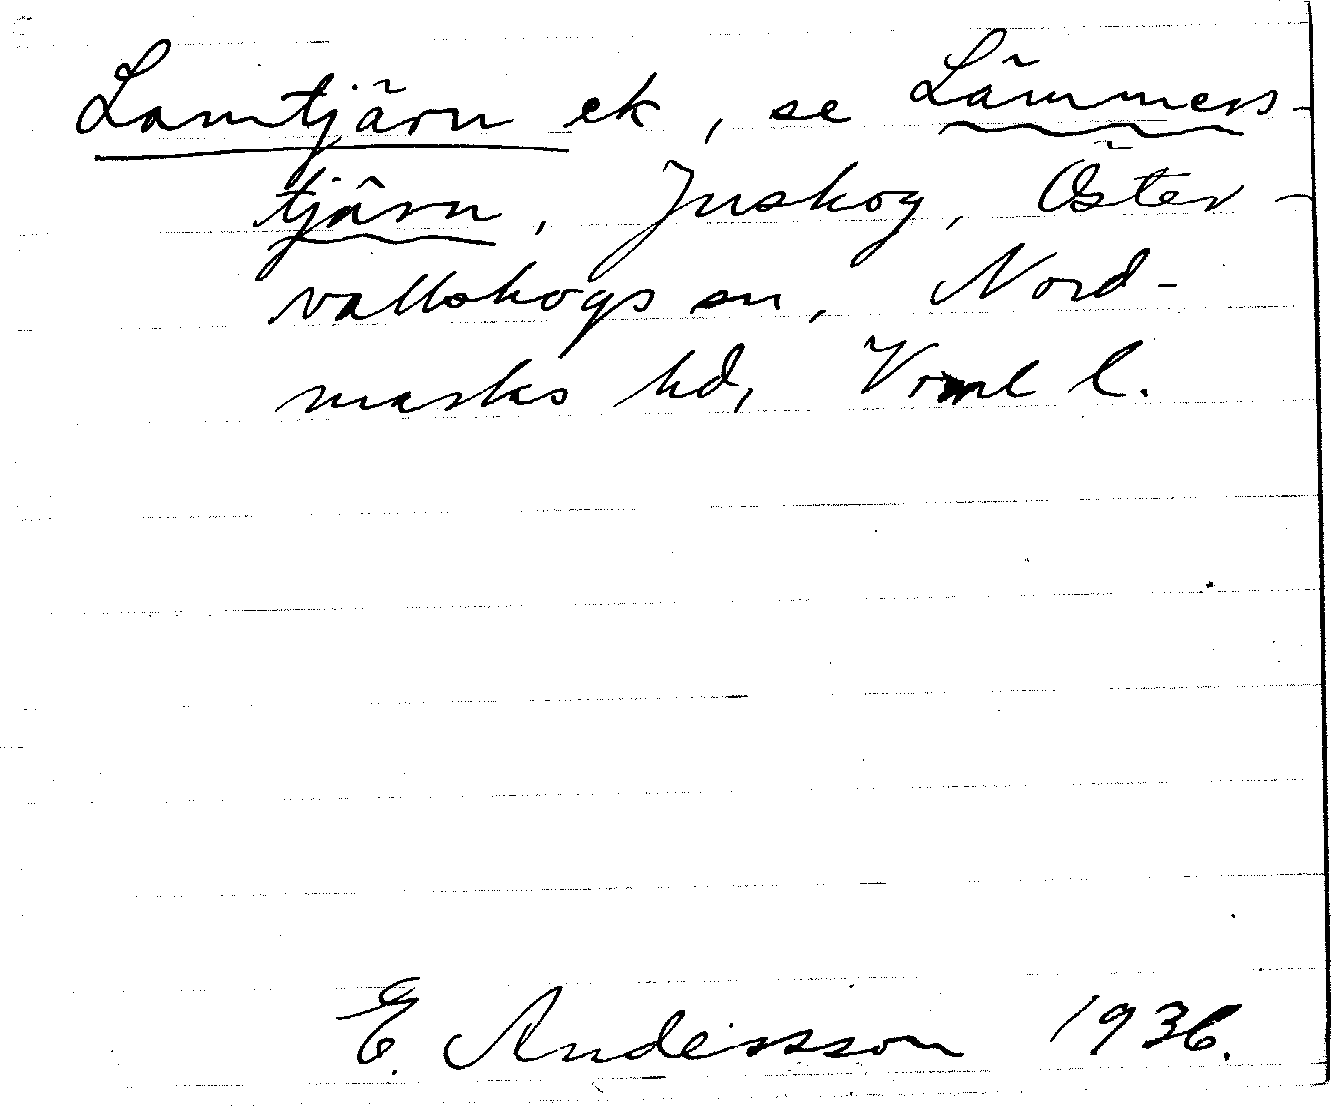 Lamtjärn ek, se Lämmers-
tjärn, Juskog, Öster-
vallskogs sn, Nord-
marks hd, Vrml l.
E. Andersson 1936.